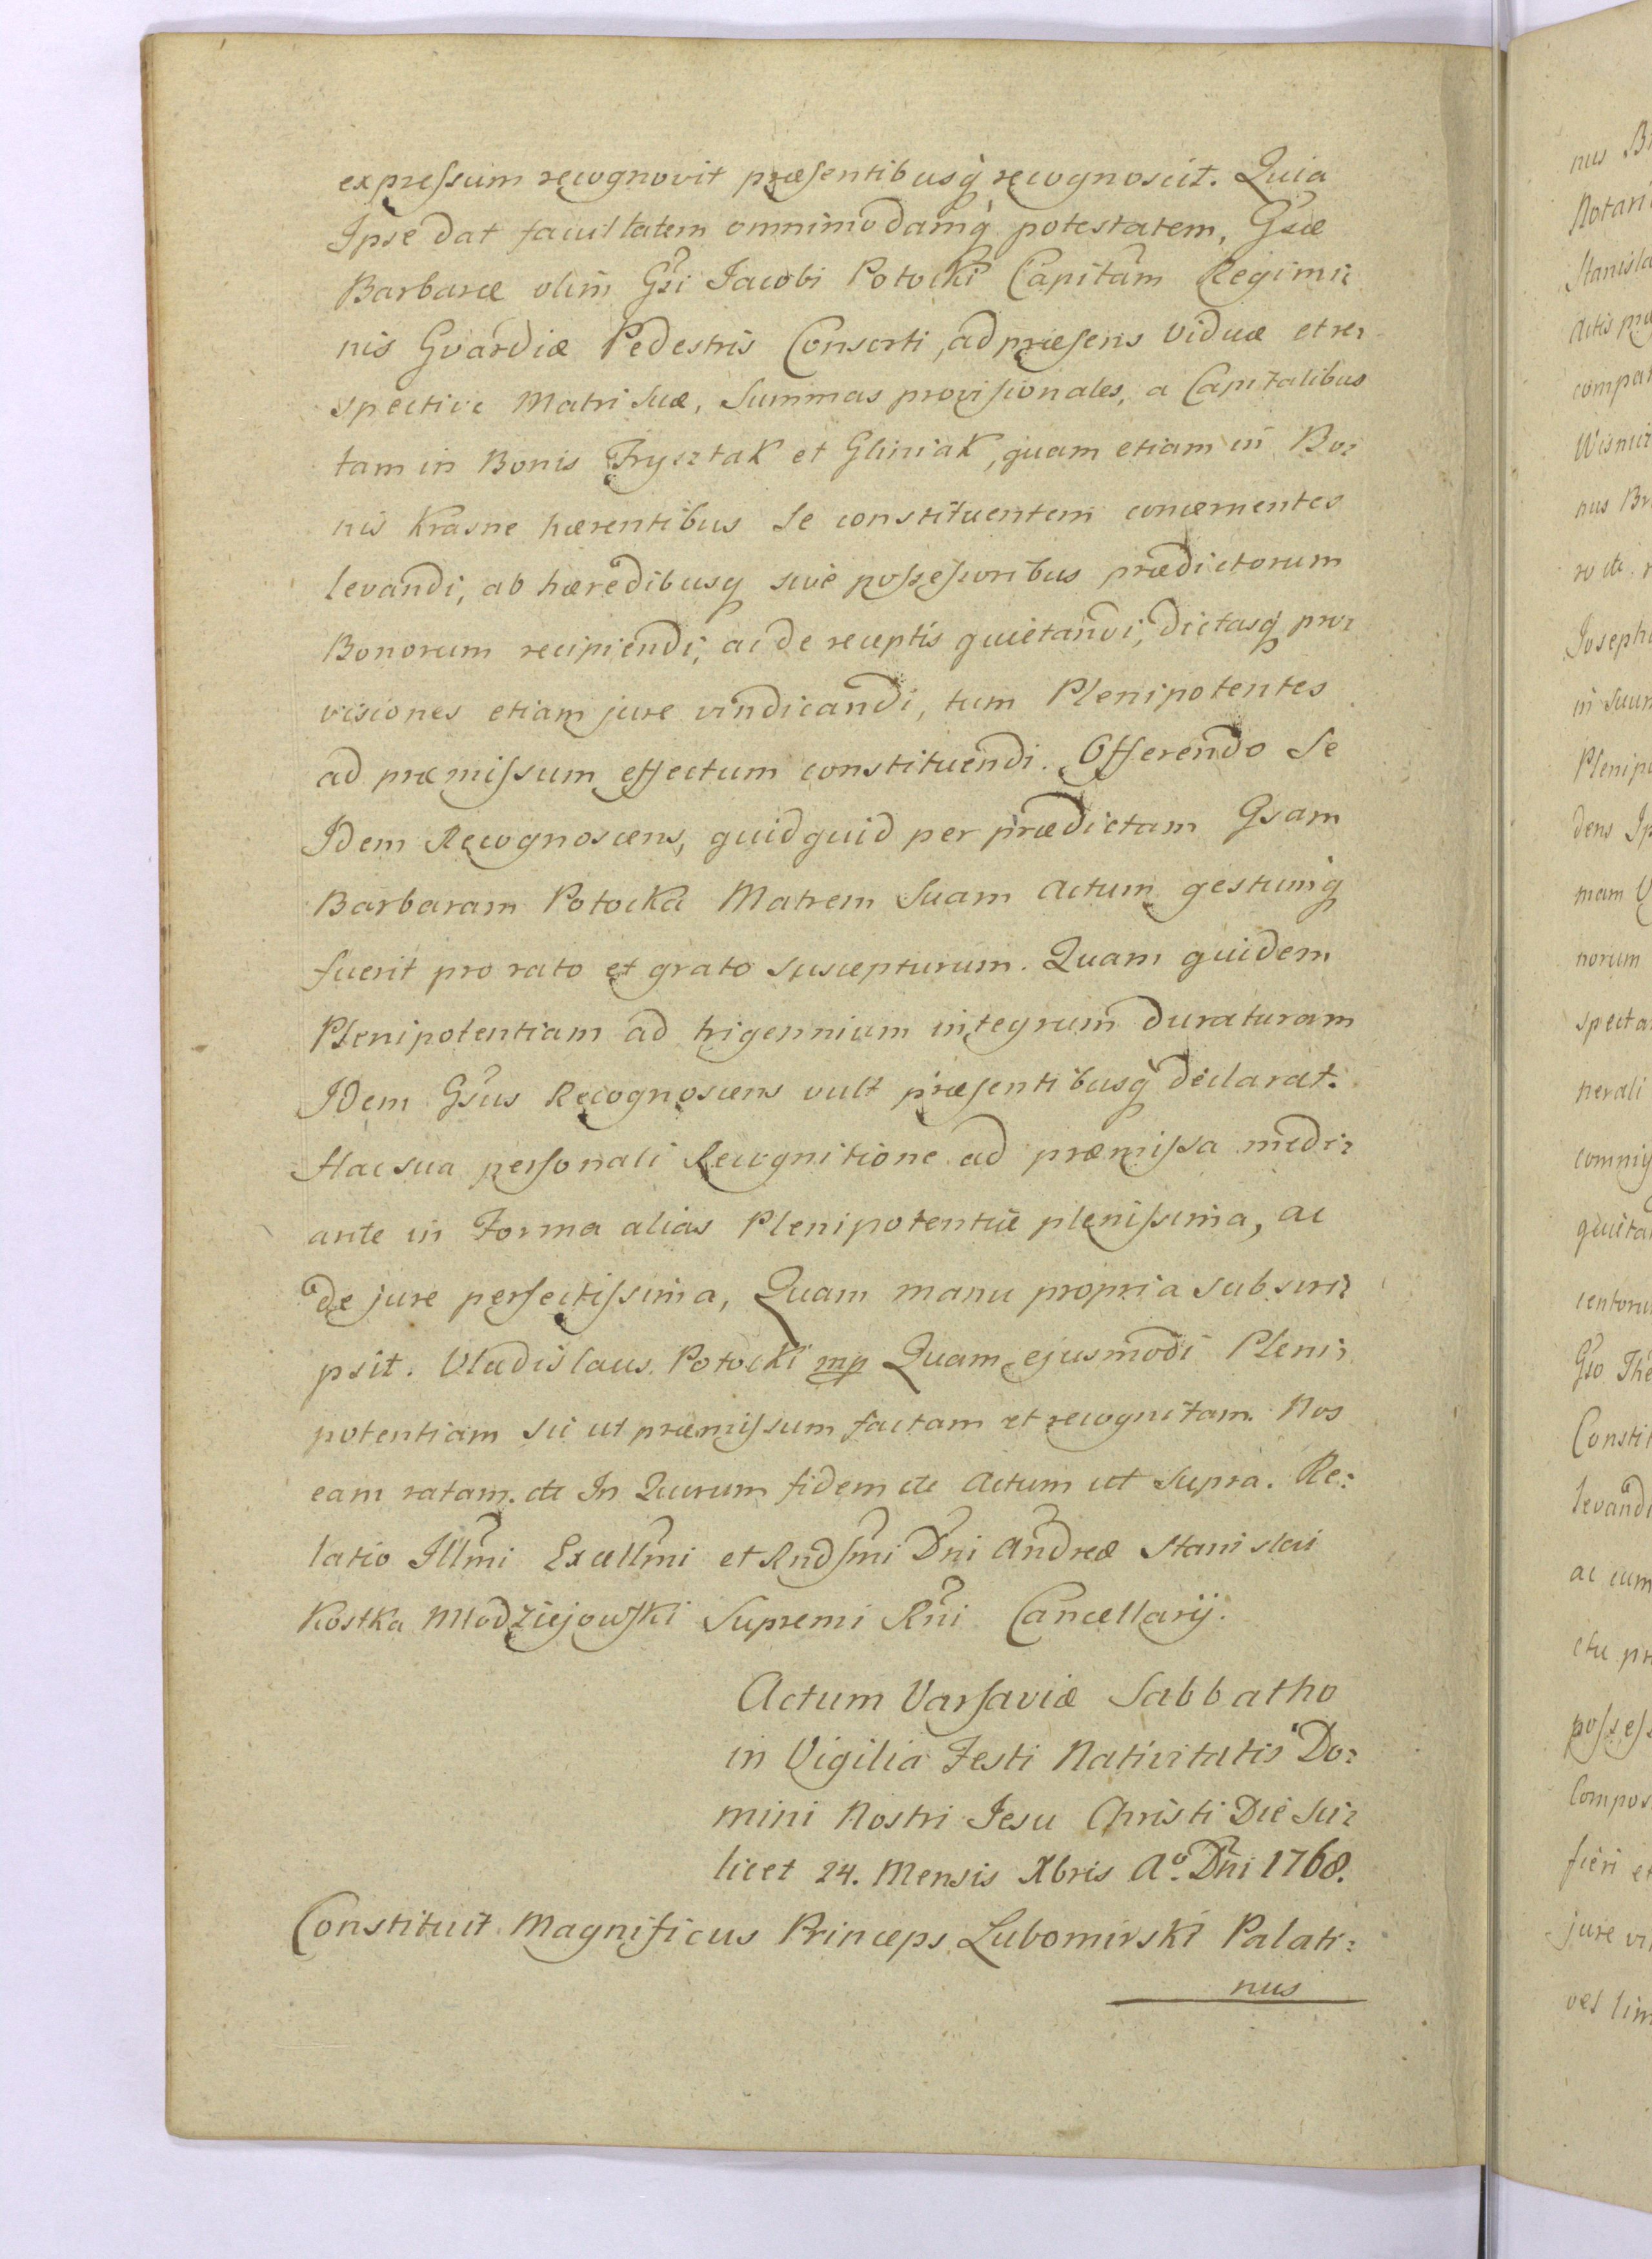 expreſsum recognovit præſentibusq́ recognoscit. Quia
Ipse dat facultatem omnimodamq́ potestatem, Gsæ
Barbaræ olim Gsi Jacobi Potocki Capitam Regimi:
nis Gvardiæ Pedestris Consorti, ad præſens Viduæ et re:
spective Matri Suæ, Summas proviſionales, a Capitalibus
tam in Bonis Frysztak et Gliniak, quam etiam in Bo:
nis Krasne hærentibus Se constituentem concernentes
levandi, ab hæredibusq sive poſseſsoribus prædictorum
Bonorum recipiendi, ac de receptis quietandi, dictasq́ pro:
visiones etiam jure vindicandi, tum Plenipotentes
ad præmiſsum effectum constituendi. Offerendo Se
Idem Recognoscens, quidquid per prædictam Gsam
Barbaram Potocka Matrem Suam actum gestumq́
fuerit pro rato et grato suscepturum. Quam quidem
Plenipotentiam ad trigennium integrum duraturam
Idem Gsus Recognoscens vult præſentibusq́ declarat.
Hac sua perſonali Recognitione ad præmiſsa medi:
ante in Forma alias Plenipotentiæ pleniſsima, ac
de jure perfectiſsima, Quam manu propria subscri:
psit. Vladislaus Potocki mp Quam ejusmodi Pleni:
potentiam sic ut præmiſsum factam et recognitam. Nos
eam ratam. etc In Quorum fidem etc Actum ut Supra. Re:
latio Illmi Excellmi et Rndſmi Dni Andreæ Stanislai
Kostka Młodziejowſki Supremi Rni Cancellarij.
Actum Varſaviæ Sabbatho
in Vigilia Festi Nativitatis Do:
mini Nostri Jesu Christi Die Sci:
licet 24. Mensis Xbris Aº. Dni 1768.
Constituit Magnificus Princeps Lubomirski Palati:
nus